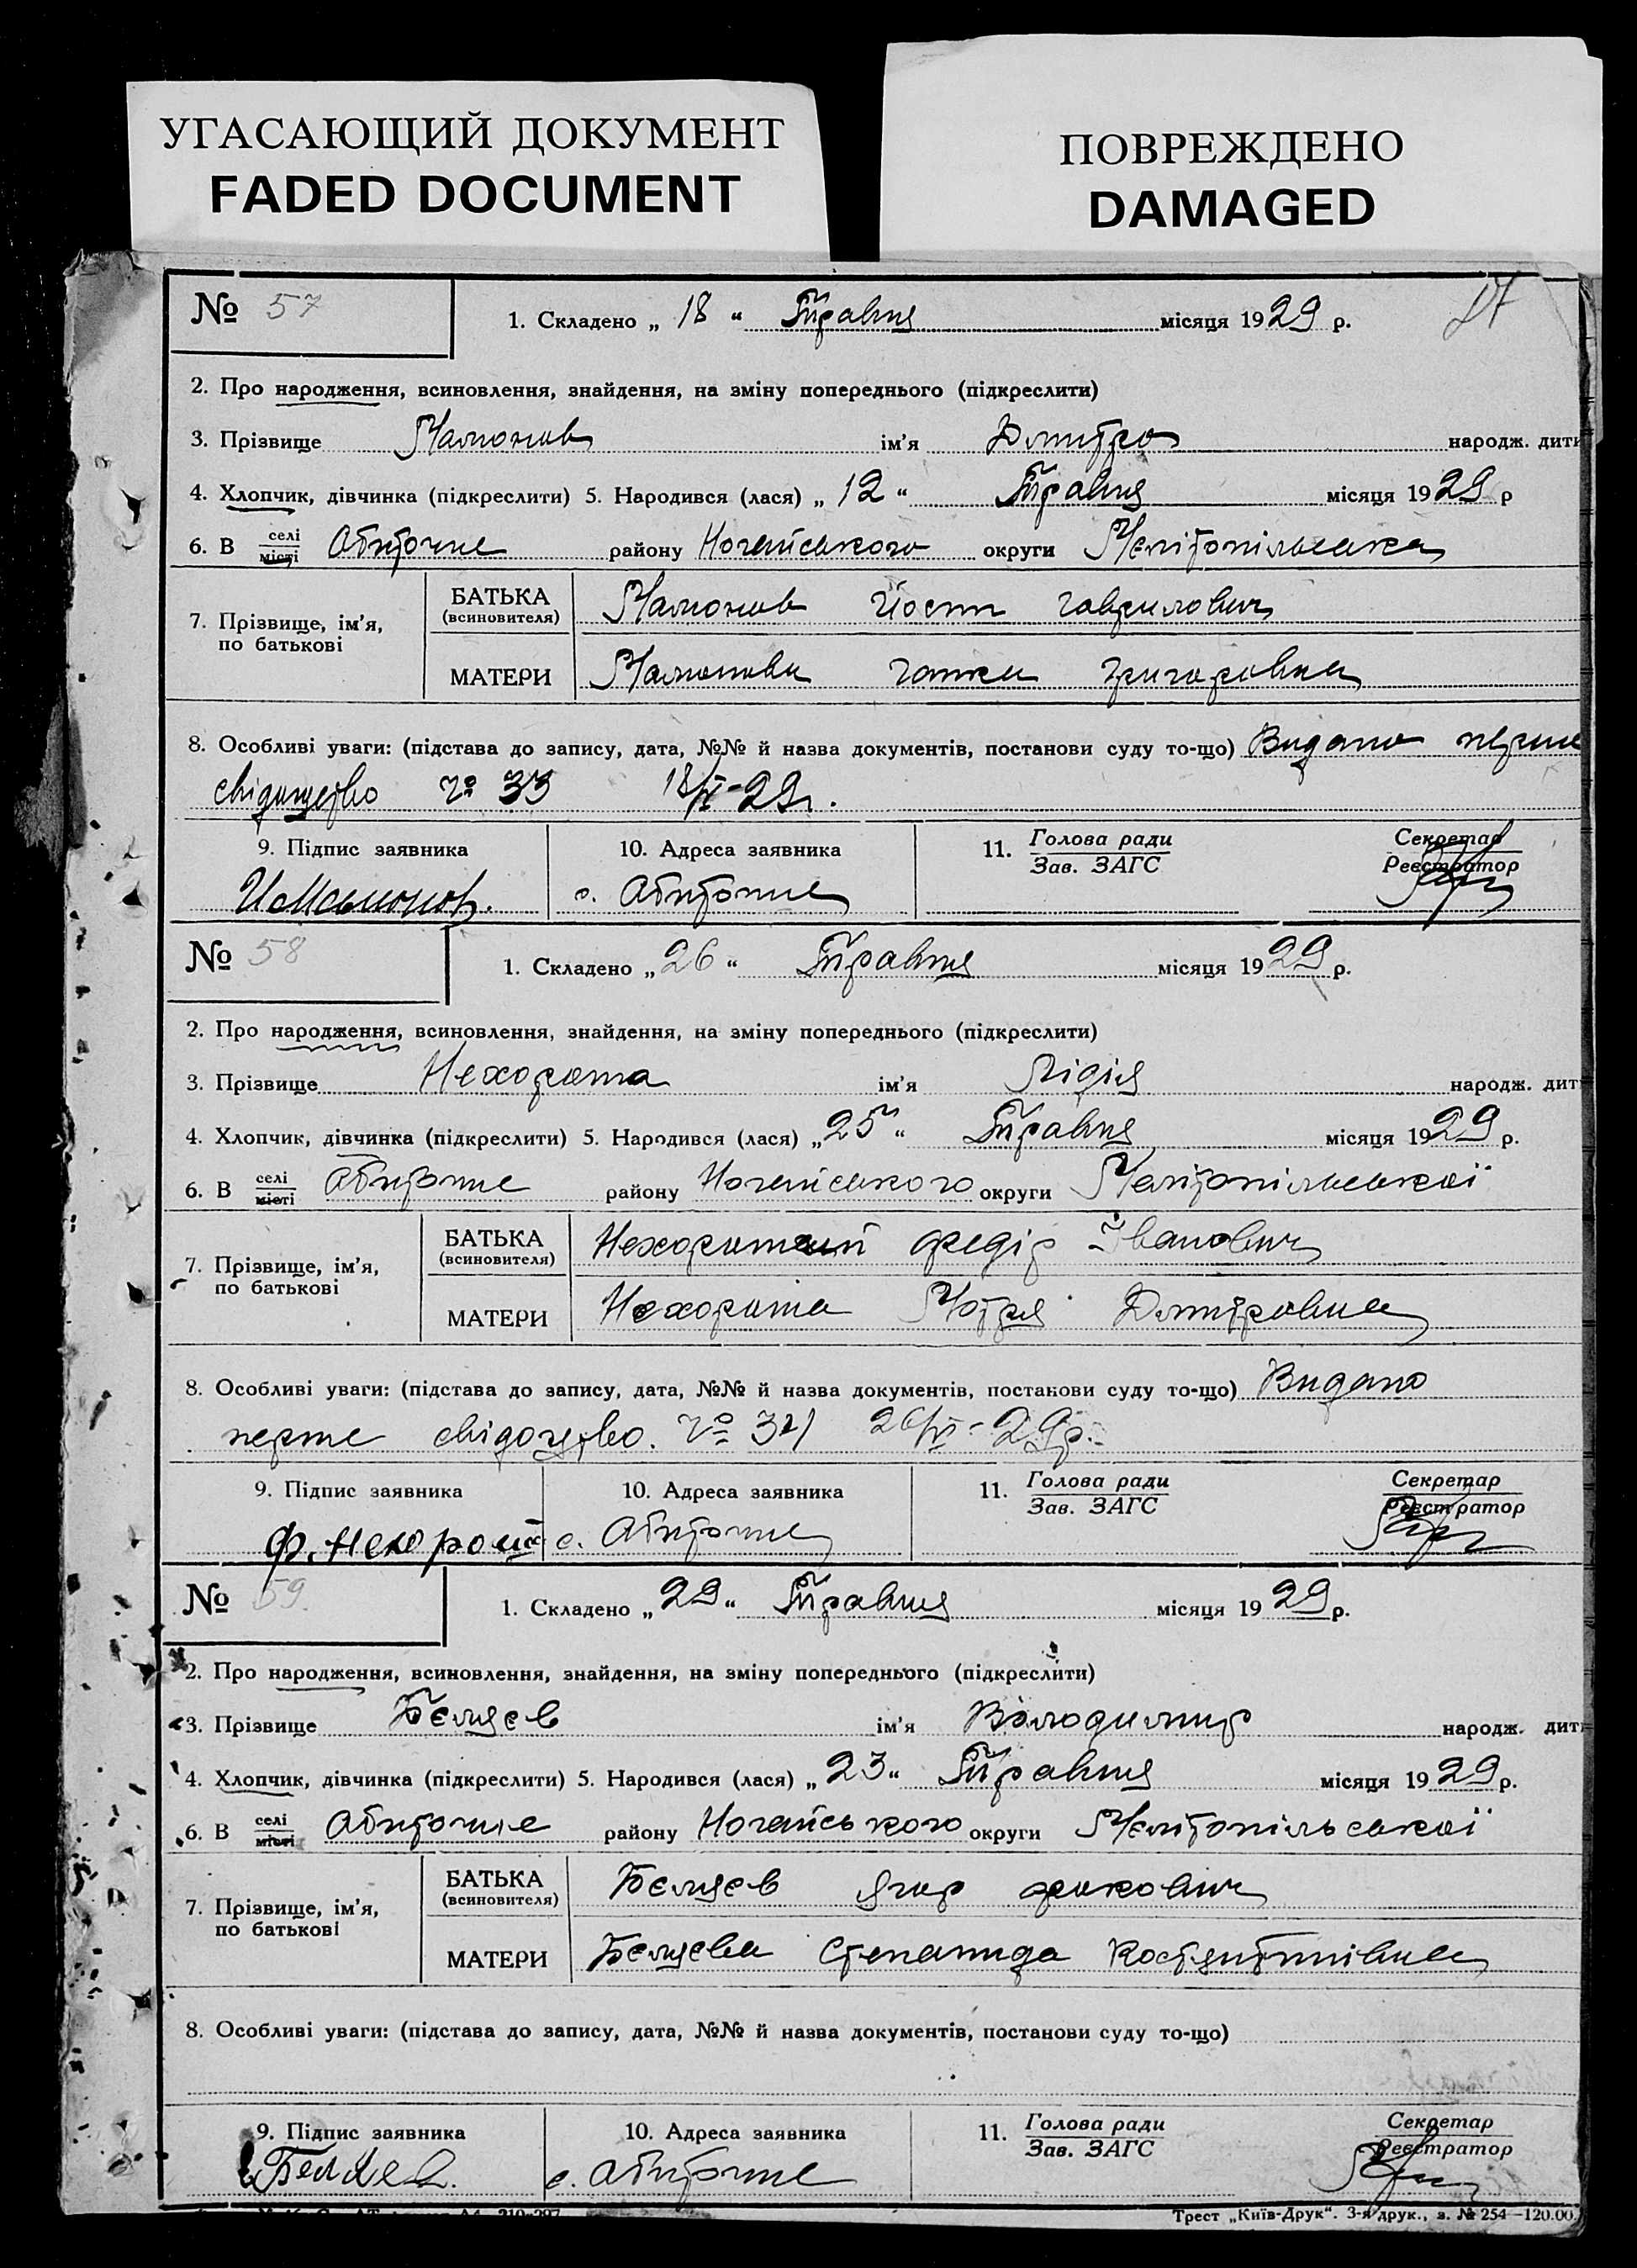 УГАСАЮЩИЙ ДОКУМЕНТ
FADED DOCUMENT
ПОВРЕЖДЕНО
DAMAGED
№ 57
1. Складено „ 18 “ Травня місяця 1929 р.
2. Про народження, всиновлення, знайдення, на зміну попереднього (підкреслити)
3. Прізвище Мамонов ім'я Дмитро народж. дити
4. Хлопчик, дівчинка (підкреслити) 5. Народився (лася) „ 12 “ Травня місяця 1929 р
6. В селі місті Обиточне району Ногайського округи Мелітопільська
7. Прізвище, ім'я, по батькові
БАТЬКА (всиновителя) Мамонов Йосип Гаврилович
МАТЕРИ Мамонова Ганна Григоровна
8. Особливі уваги: (підстава до запису, дата, №№ й назва документів, постанови суду то-що) Видано перше
свідоцтво № 33 18/V-29р.
9. Підпис заявника
10. Адреса заявника
11. Голова ради
Зав. ЗАГС
Секретар
Реєстратор
И Мамонов.
с. Обиточне
№ 58
1. Складено „ 26 “ Травня місяця 1929 р.
2. Про народження, всиновлення, знайдення, на зміну попереднього (підкреслити)
3. Прізвище Нехороша ім'я Лідія народж. дит
4. Хлопчик, дівчинка (підкреслити) 5. Народився (лася) „ 25 “ Травня місяця 1929 р.
6. В селі місті Обиточне району Ногайського округи Мелітопільської
7. Прізвище, ім'я, по батькові
БАТЬКА (всиновителя) Нехороший Федір Іванович
МАТЕРИ Нехороша Мотря Дмитровна
8. Особливі уваги: (підстава до запису, дата, №№ й назва документів, постанови суду то-що) Видано
перше свідоцтво. № 34 26/V-29р.
9. Підпис заявника
10. Адреса заявника
11. Голова ради
Зав. ЗАГС
Секретар
Реєстратор
Ф. Нехорош
с. Обиточне
№ 59
1. Складено „ 29 “ Травня місяця 1929 р.
2. Про народження, всиновлення, знайдення, на зміну попереднього (підкреслити)
3. Прізвище Бєляєв ім'я Володимир народж. дит
4. Хлопчик, дівчинка (підкреслити) 5. Народився (лася) „ 23 “ Травня місяця 1929 р.
6. В селі місті Обиточне району Ногайського округи Мелітопільської
7. Прізвище, ім'я, по батькові
БАТЬКА (всиновителя) Бєляєв Ягор Фокович
МАТЕРИ Бєляєва Степанида Костянтинівна
8. Особливі уваги: (підстава до запису, дата, №№ й назва документів, постанови суду то-що)
9. Підпис заявника
10. Адреса заявника
11. Голова ради
Зав. ЗАГС
Секретар
Реєстратор
Беляев.
с. Обиточне
Трест „Київ-Друк“. 3-я друк., з. № 254—120.00